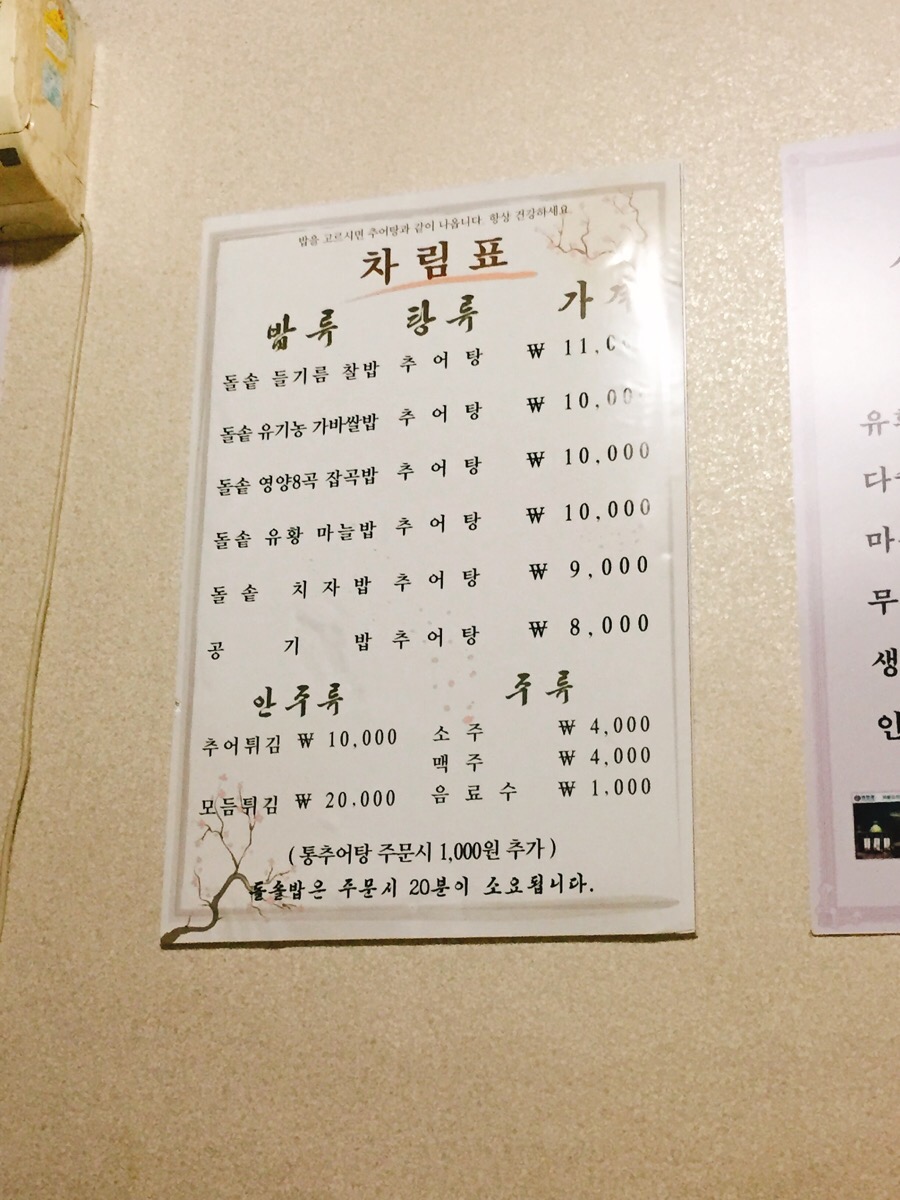 밥을 고르시면 추어탕과 같이 나옵니다. 항상 건강하세요
차림표
밥류 탕류 가
돌솥 들기름 찰밥 추어탕 ₩ 11,0
돌솥 유기농 가바쌀밥 추어탕 ₩ 10,00
돌솥 영양8곡 잡곡밥 추어탕 ₩ 10,000
돌솥 유황 마늘밥 추어탕 ₩ 10,000
돌솥 치자밥 추어탕 ₩ 9,000
공기밥 추어탕 ₩ 8,000
안주류 주류
추어튀김 ₩ 10,000 소주 ₩ 4,000
맥주 ₩ 4,000
모듬튀김 ₩ 20,000 음료수 ₩ 1,000
(통추어탕 주문시 1,000원 추가)
돌솥밥은 주문시 20분이 소요됩니다.
유
다
마
무
생
인